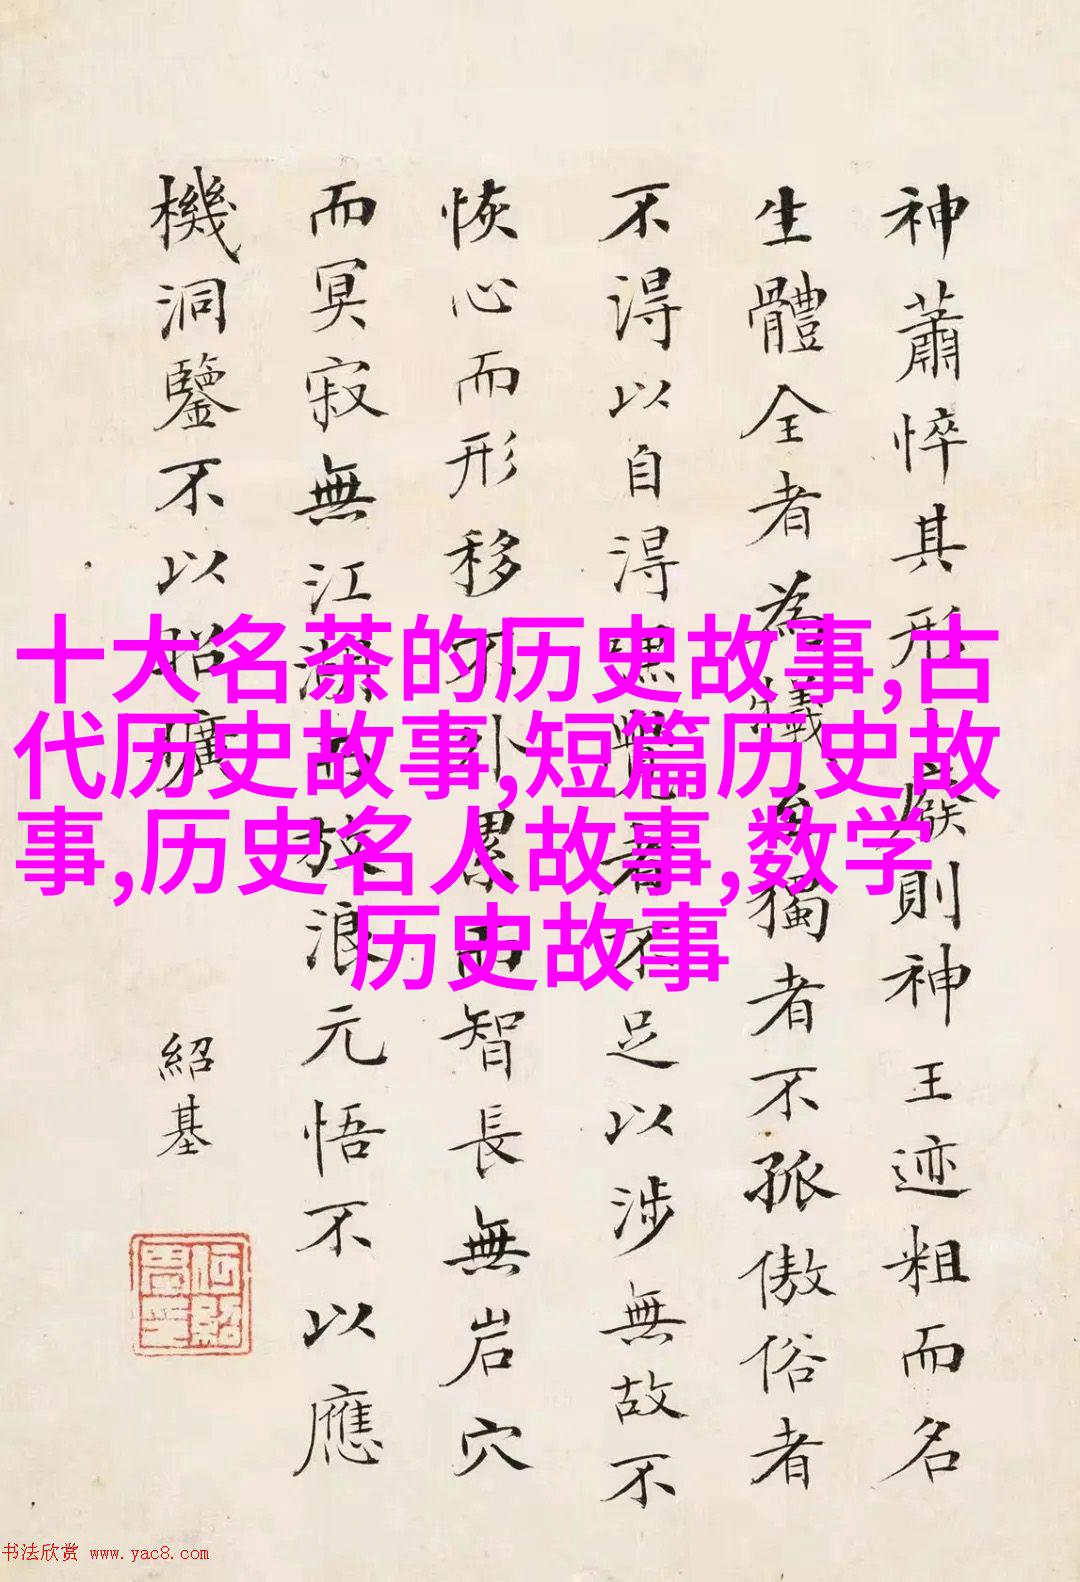 神蕭悴其形則神王迹粗而名
生體全者為犧獨者不孤傲俗者
不得以自得默覺者不足以涉無故不
恢心而形移不外累而智長無岩穴
而冥寂無江湖而放浪元悟不以應
機洞鑒不以昭曠
紹基
十大名茶的历史故事,古
代历史故事,短篇历史故
事,历史名人故事,数学
历史故事
书法欣赏 www.yac8.com